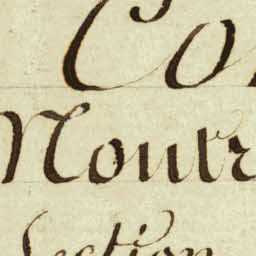 Co
Nour
Section